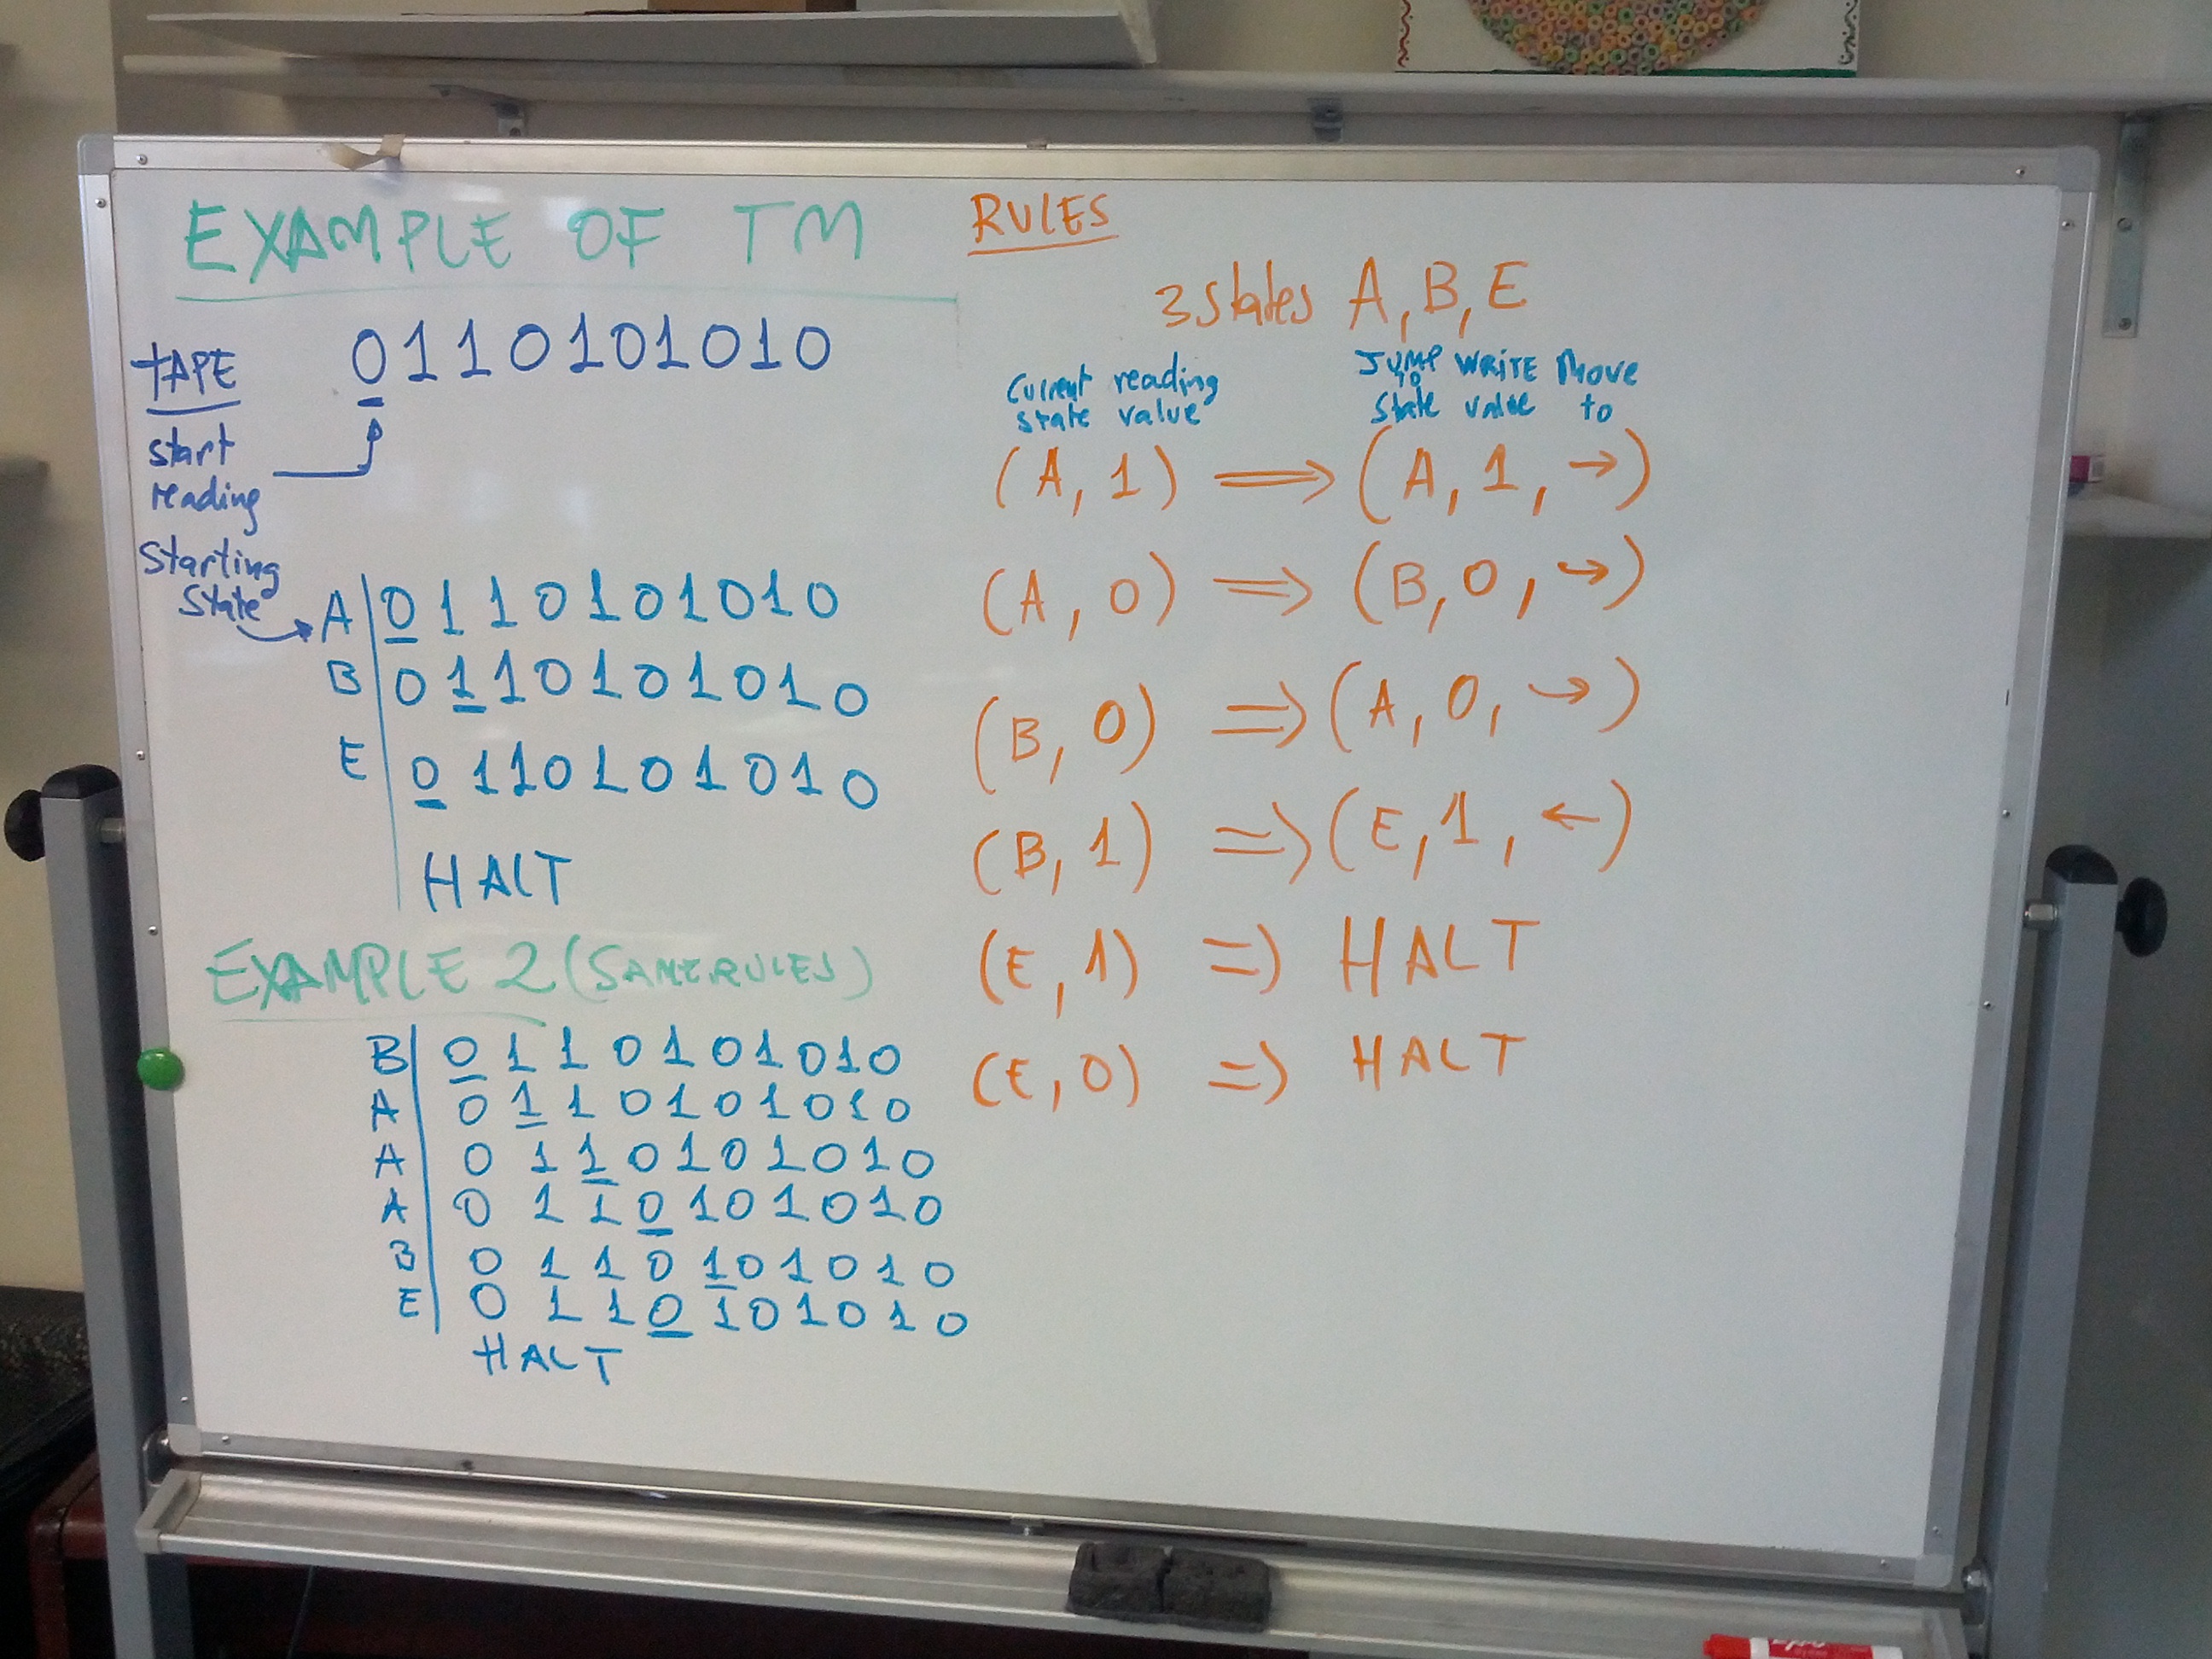 EXAMPLE OF TM
TAPE 0110101010
start
reading
Starting
State
A 0110101010
B 0110101010
E 0110101010
HALT
EXAMPLE 2 (SAME RULES)
B 0110101010
A 0110101010
A 0110101010
A 0110101010
B 0110101010
E 0110101010
HALT
RULES
3 states A, B, E
Current reading JUMP TO WRITE Move
state value State value to
(A, 1) ⟹ (A, 1, →)
(A, 0) ⟹ (B, 0, →)
(B, 0) ⟹ (A, 0, →)
(B, 1) ⟹ (E, 1, ←)
(E, 1) ⟹ HALT
(E, 0) ⟹ HALT